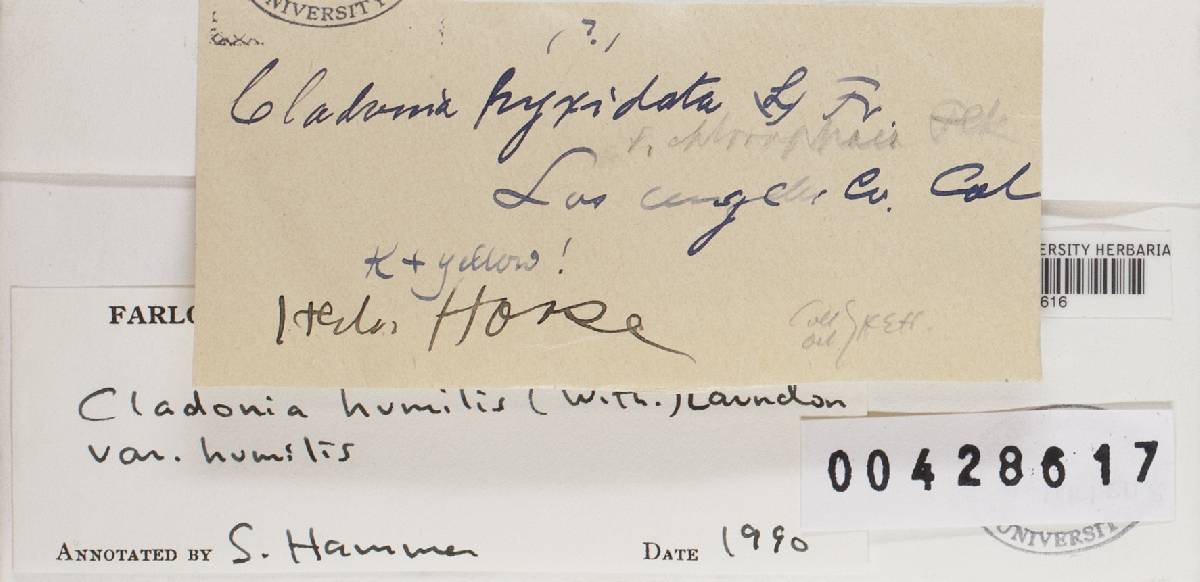 NIVERSITY
(?)
Cladonia pyxidata L) Fr.
f. chlorophaea Flk
Los Angeles Co. Cal
K + yellow!
ERSITY HERBARIA
616
FARLO
Cladonia humilis (With.) Laundon
var. humilis
00428617
ANNOTATED BY S. Hammer DATE 1990
UNIVERSITY